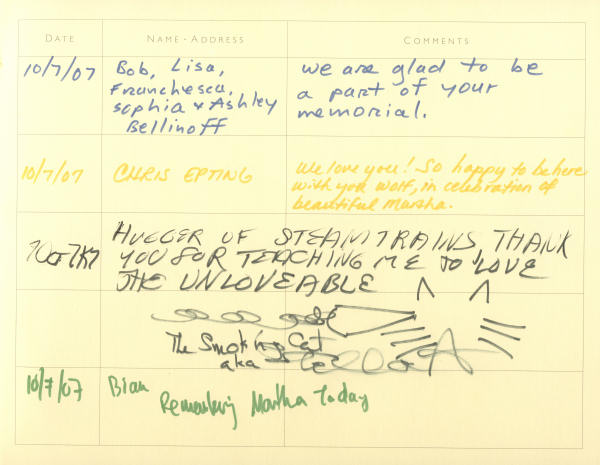 DATE NAME - ADDRESS COMMENTS
10/7/07 Bob, Lisa, we are glad to be
Franchesca, a part of your
Sophia & Ashley memorial.
Bellinoff
10/7/07 CHRIS EPTING We love you! So happy to be here
with you Wolf, in celebration of
beautiful Martha.
HUGGER OF STEAM TRAINS, THANK
YOU FOR TEACHING ME TO LOVE
THE UNLOVEABLE
The Smoking Cat
aka
10/7/07 Brian
Remembering Martha Today